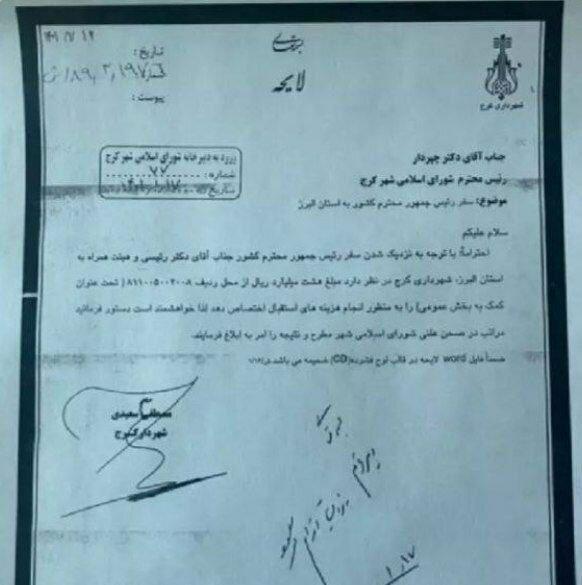 لایحه
تاریخ:
پیوست:
شهرداری کرج
ورود به دبیرخانه شورای اسلامی شهر کرج
شماره: ۷۷
تاریخ
جناب آقای دکتر چهردار
رئیس محترم شورای اسلامی شهر کرج
موضوع: سفر رئیس جمهور محترم کشور به استان البرز
سلام علیکم
احتراماً؛ با توجه به نزدیک شدن سفر رئیس جمهور محترم کشور جناب آقای دکتر رئیسی و هیئت همراه به
استان البرز، شهرداری کرج در نظر دارد مبلغ هشت میلیارد ریال از محل ردیف ( تحت عنوان
کمک به بخش عمومی) را به منظور انجام هزینه های استقبال اختصاص دهد لذا خواهشمند است دستور فرمائید
مراتب در صحن علنی شورای اسلامی شهر مطرح و نتیجه را امر به ابلاغ فرمایند.
ضمناً فایل word لایحه در قالب لوح فشرده(CD) ضمیمه می باشد
مصطفی سعیدی
شهردار کرج